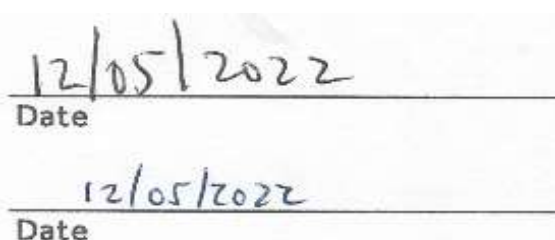 12/05/2022
Date
12/05/2022
Date